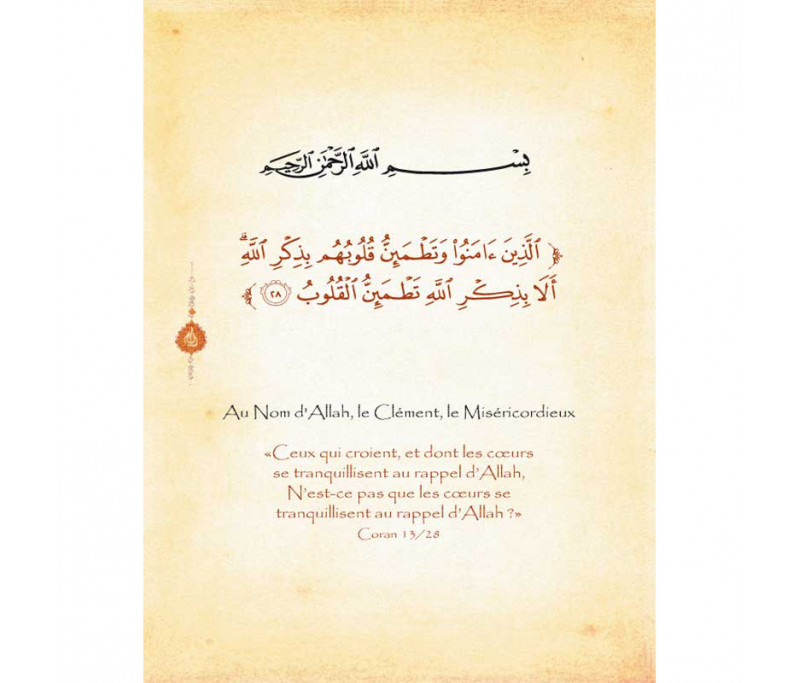 بِسْمِ اللَّهِ الرَّحْمَٰنِ الرَّحِيمِ
﴿ الَّذِينَ ءَامَنُوا۟ وَتَطْمَئِنُّ قُلُوبُهُم بِذِكْرِ اللَّهِ ۗ
أَلَا بِذِكْرِ اللَّهِ تَطْمَئِنُّ الْقُلُوبُ ٢٨ ﴾
الله
Au Nom d'Allah, le Clément, le Miséricordieux
«Ceux qui croient, et dont les cœurs
se tranquillisent au rappel d'Allah,
N'est-ce pas que les cœurs se
tranquillisent au rappel d'Allah ?»
Coran 13/28